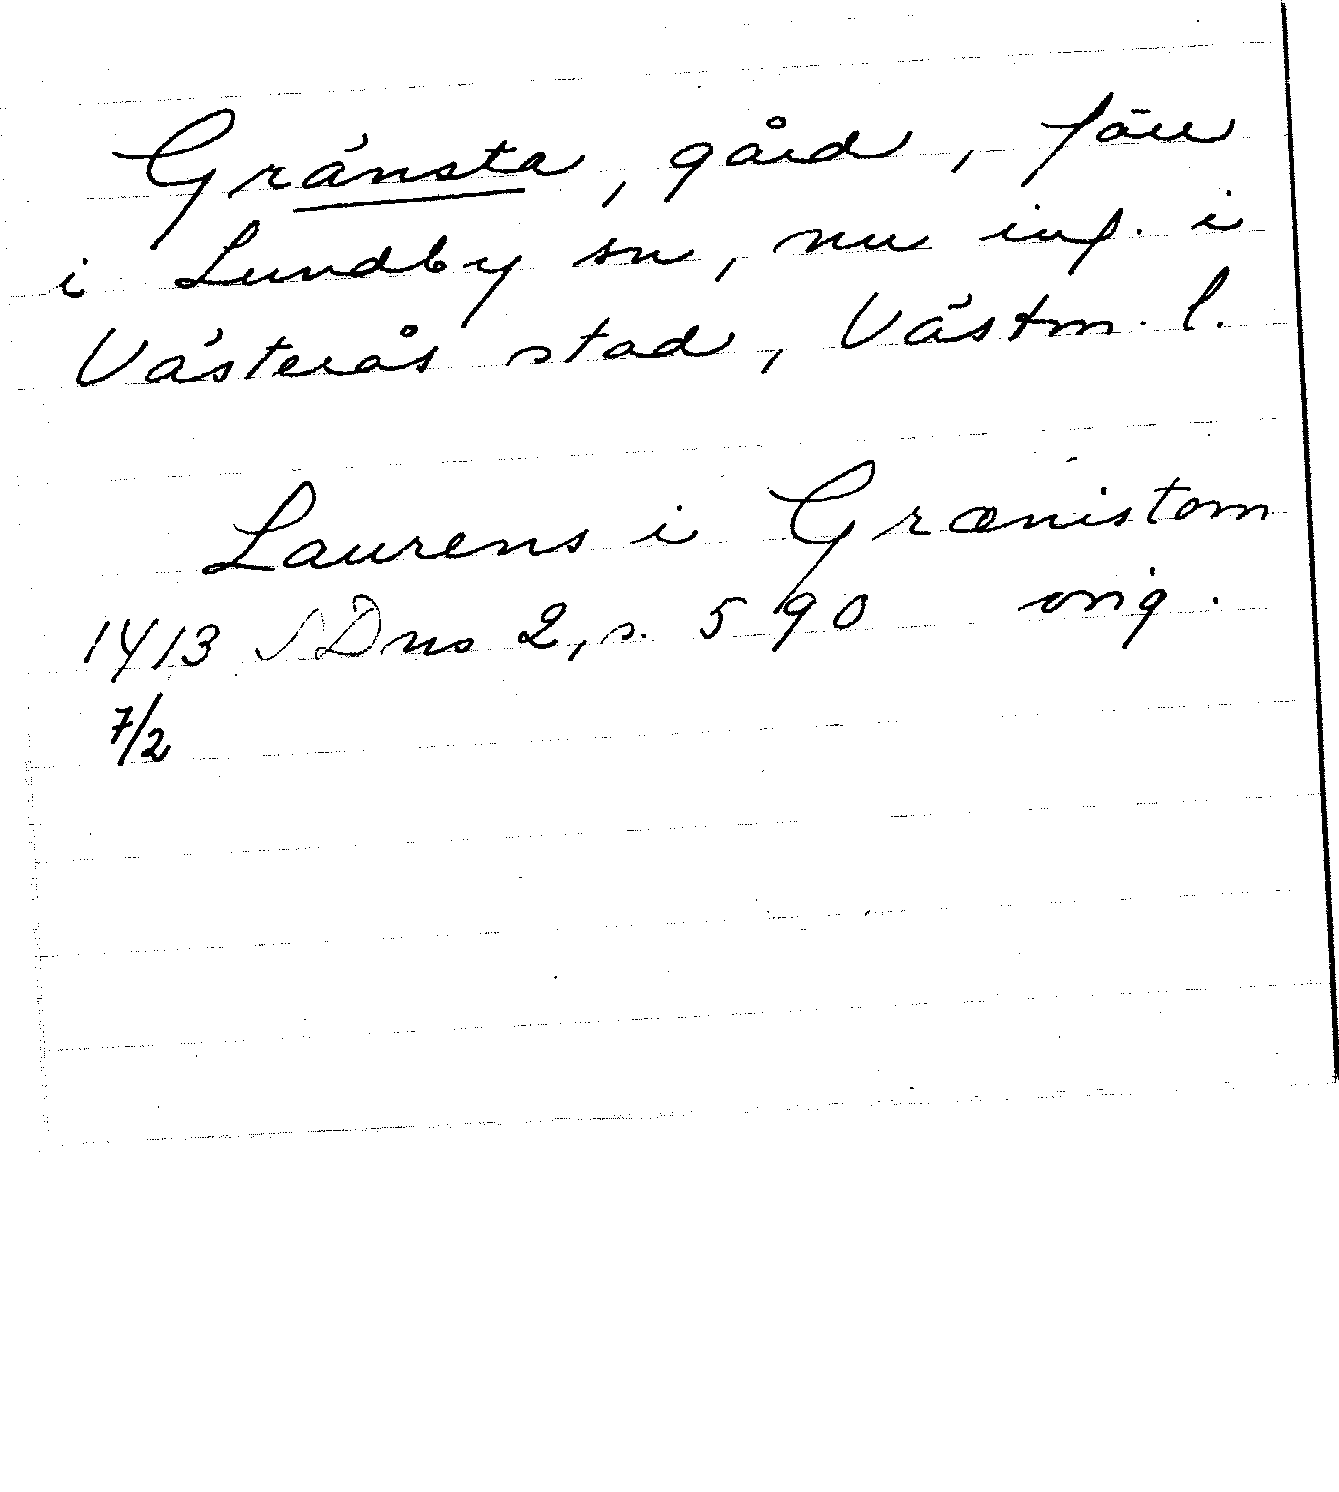 Gränsta, gård, förr
i Lundby sn, nu ing. i
Västerås stad, Västm. l.
Laurens i Grænistom
1413 SDns 2, s. 590 orig.
7/2